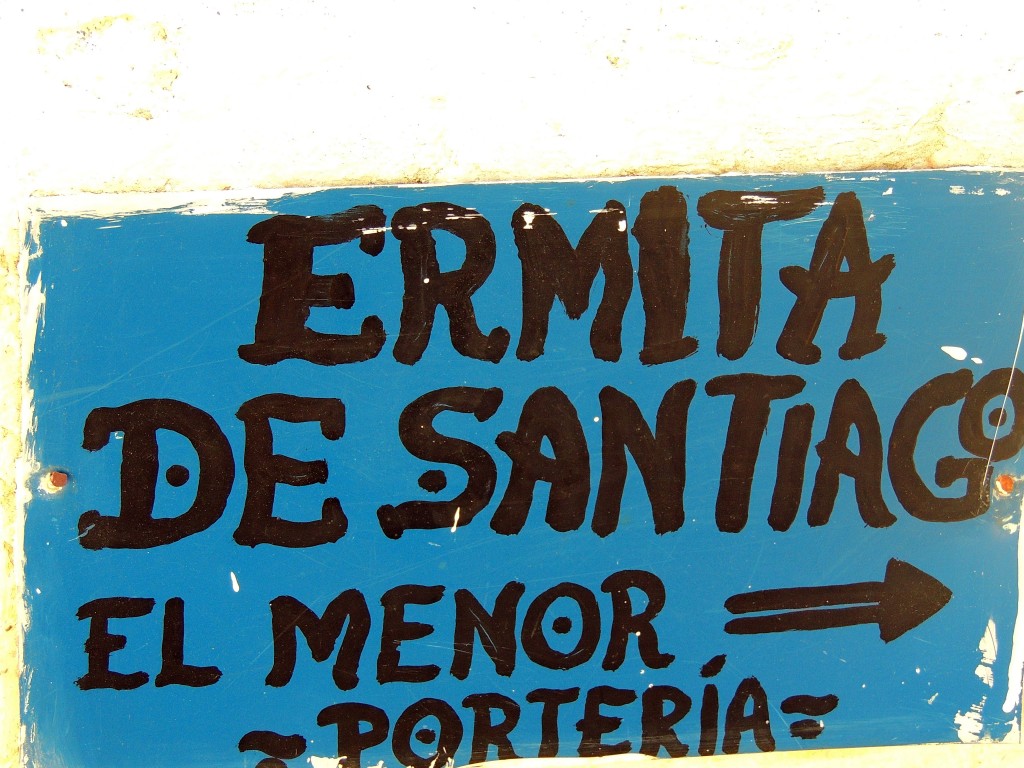 ERMITA
DE SANTIAGO
EL MENOR
~PORTERÍA~